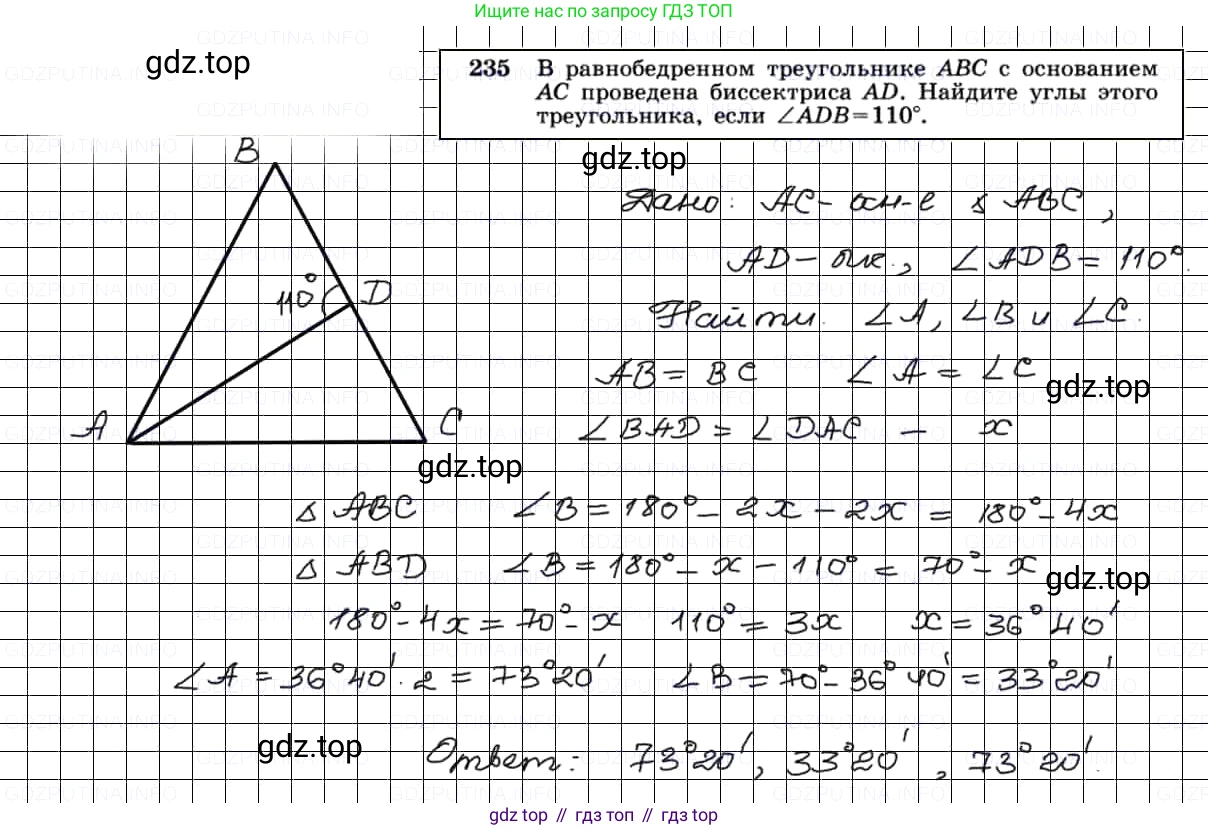 Ищите нас по запросу ГДЗ ТОП
gdz.top
235 В равнобедренном треугольнике ABC с основанием
AC проведена биссектриса AD. Найдите углы этого
треугольника, если ∠ADB=110°.
gdz.top
B
Дано: AC – осн-е Δ ABC,
AD – бис., ∠ADB = 110°.
110° D
Найти: ∠A, ∠B и ∠C.
AB = BC ∠A = ∠C
gdz.top
A C
∠BAD = ∠DAC – x
gdz.top
Δ ABC ∠B = 180° – 2x – 2x = 180° – 4x
Δ ABD ∠B = 180° – x – 110° = 70° – x
gdz.top
180° – 4x = 70° – x 110° = 3x x = 36° 40'
∠A = 36°40' · 2 = 73°20' ∠B = 70° – 36°40' = 33°20'
gdz.top
Ответ: 73°20', 33°20', 73°20'.
gdz top // гдз топ // gdz top
GDZPUTINA.INFO